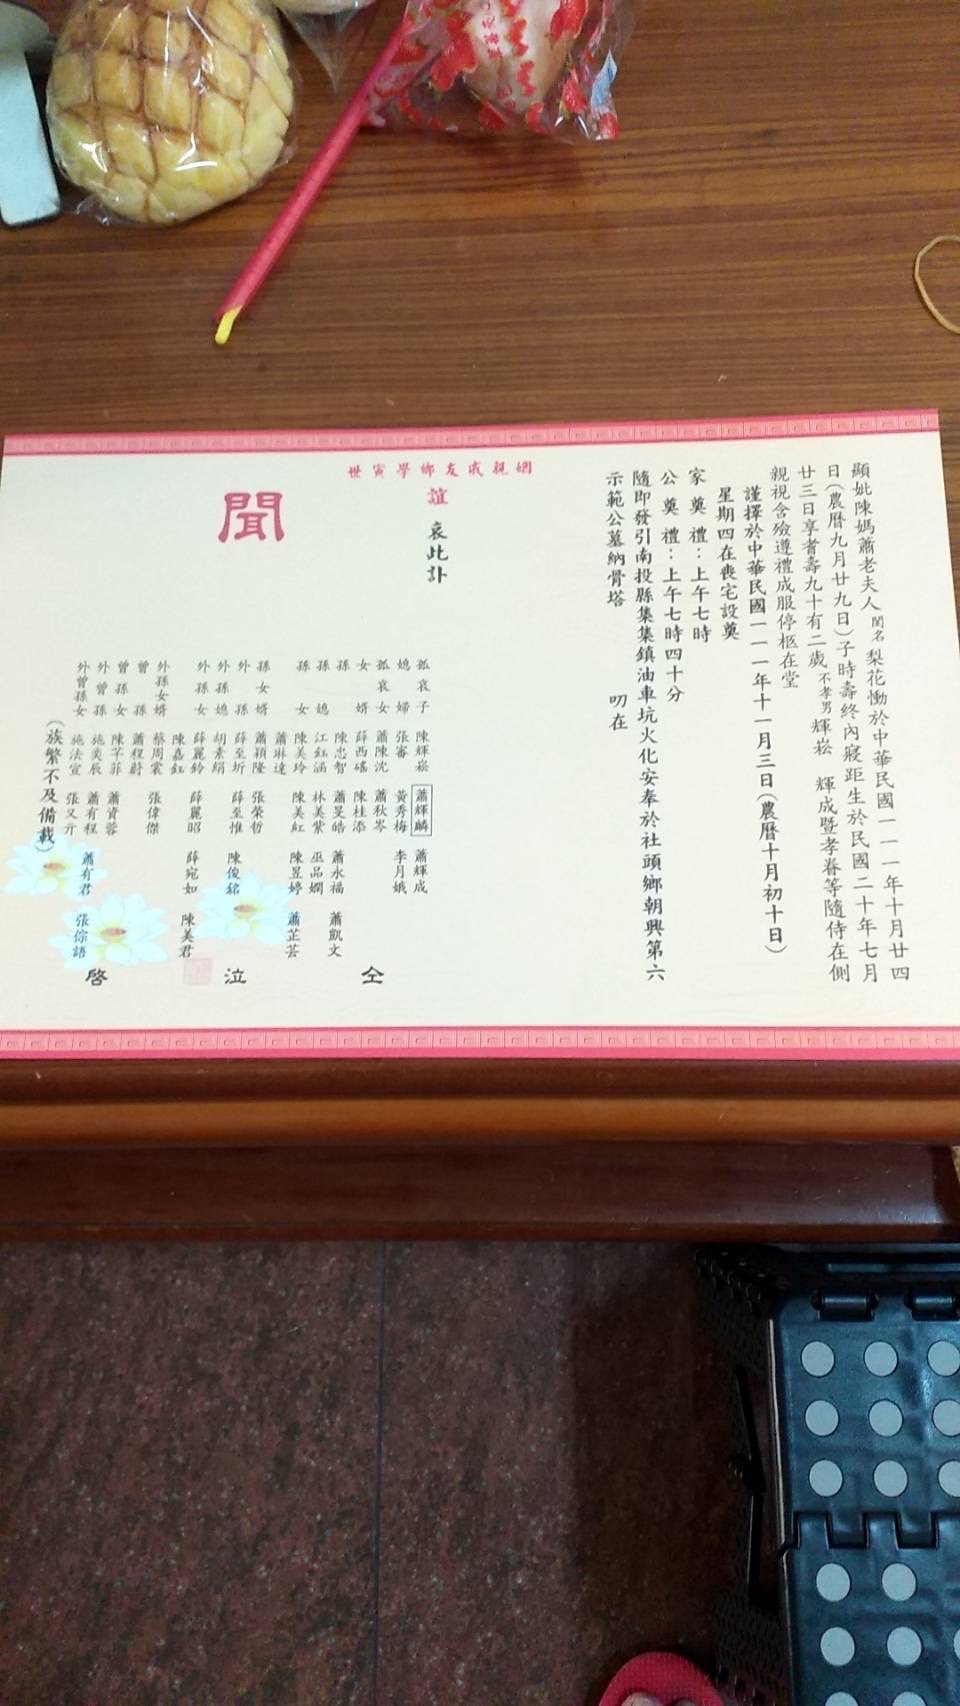 顯妣陳媽蕭老夫人閨名梨花慟於中華民國一一一年十月廿四
日(農曆九月廿九日)子時壽終內寢距生於民國二十年七月
廿三日享耆壽九十有二歲不孝男輝崧 輝成暨孝眷等隨侍在側
親視含殮遵禮成服停柩在堂
謹擇於中華民國一一一年十一月三日(農曆十月初十日)
星期四在喪宅設奠
家奠禮:上午七時
公奠禮:上午七時四十分
隨即發引南投縣集集鎮油車坑火化安奉於社頭鄉朝興第六
示範公墓納骨塔 叨在
姻親戚友鄉學寅世
誼 哀此訃
聞
孤哀子 陳輝崧 蕭輝麟 蕭輝成
媳婦 張審 黃秀梅 李月娥
孤哀女 蕭陳沈 蕭秋岑
女婿 薛西磘 陳桂添
孫 陳忠智 蕭旻皓 蕭永福 蕭凱文
孫媳 江鈺涵 林美紫 巫品嫻
孫女 陳美玲 陳美紅 陳昱婷 蕭芷芸
蕭琳達
孫女婿 蕭穎隆 張榮哲
外孫 薛至圻 薛至惟 陳俊銘
外孫媳 胡素絹
外孫女 薛麗鈴 薛麗昭 薛宛如 陳美君
陳嘉鈺
外孫女婿 蔡周霖 張偉傑
曾孫 蕭程蔚
曾孫女 陳芊菲 蕭資蓉
外曾孫 施奕辰 蕭有程 蕭有君
外曾孫女 施法宣 張又亓 張倧語
(族繁不及備載)
仝 泣 啓